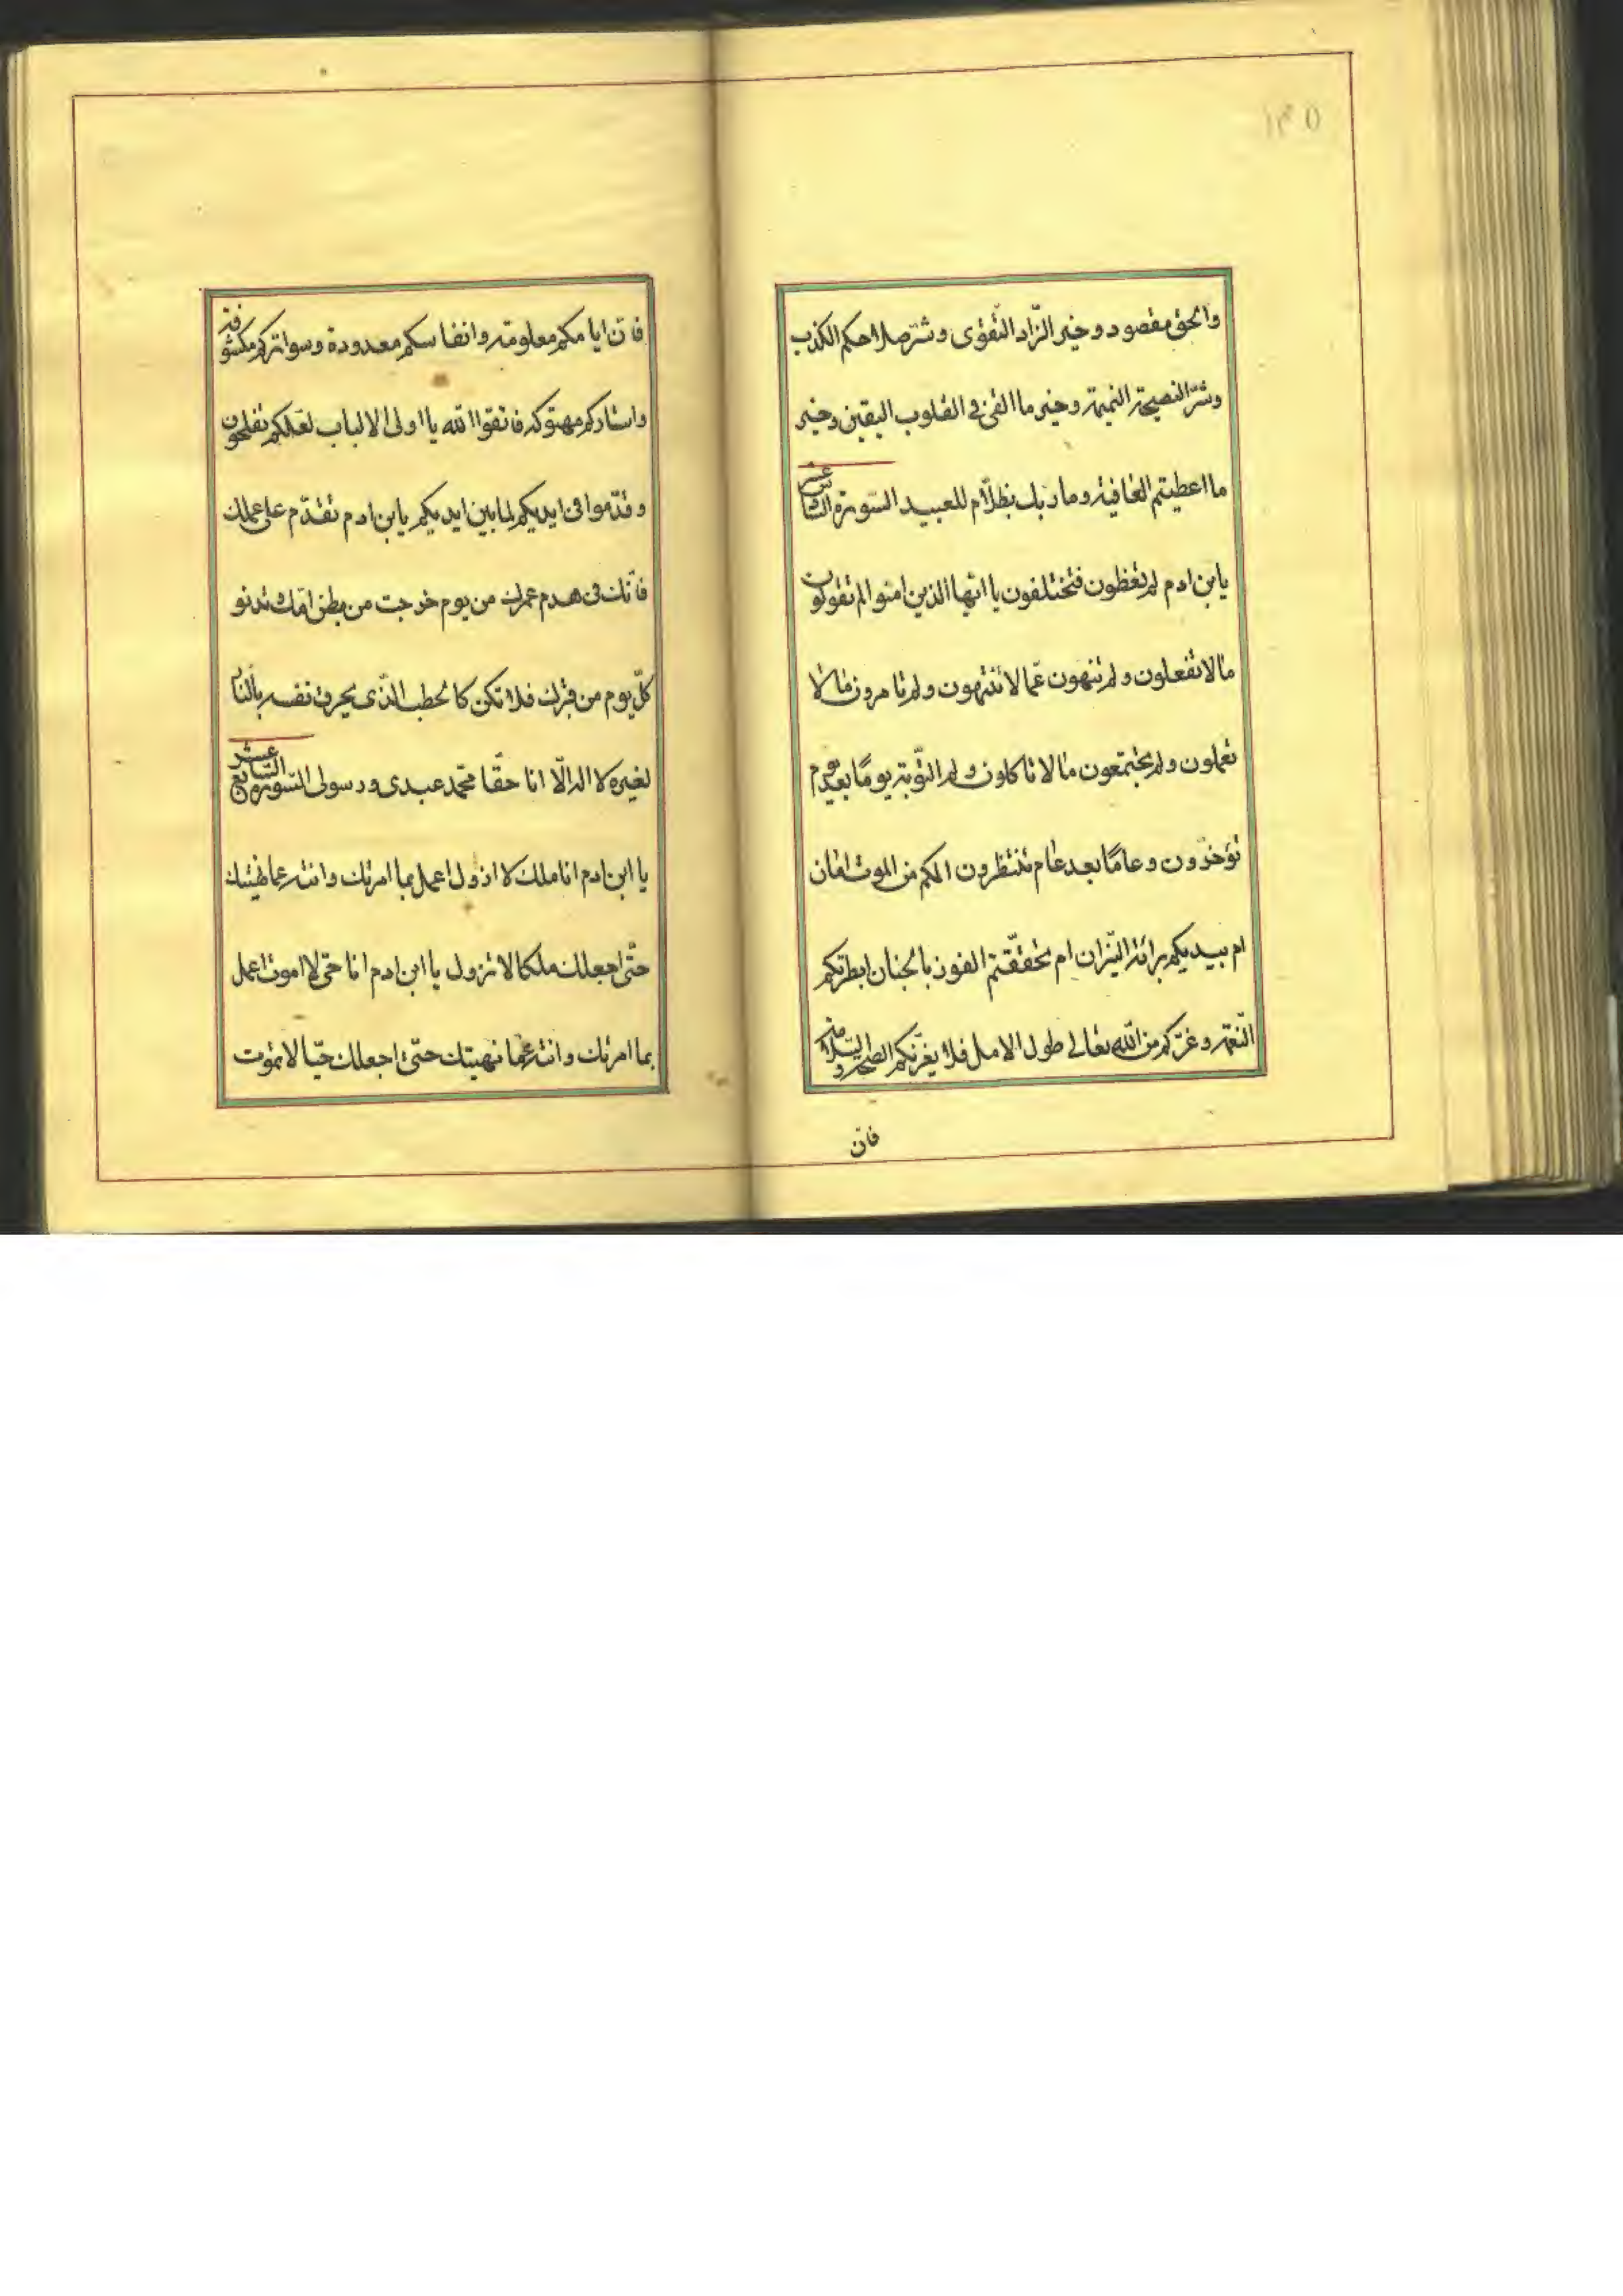 ١٣٥
والحق مقصود وخير الزّاد التّقوى وشرّ صلاحكم الكذب
وشرّ النصيحة النميمة وخير ما القى فى القلوب اليقين وخير
ما اعطيتم العافية وما ربك بظلّام للعبيد السّورة السّادس عشر
يابن ادم لم تعظون فتختلفون يا ايّها الذين امنوا لم تقولون
ما لا تفعلون ولم تنهون عمّا لا تنتهون ولم تامرون ما لا
تعملون ولم تجتمعون ما لا تاكلون ولم التّوبة يومًا بعد يوم
تؤخرون وعامًا بعد عام تنتظرون الكم من الموت امان
ام بيديكم برائة النّيران ام تحققّتم الفوز بالجنان ابطرتكم
النّعمة وغرّكم من اللّه تعالى طول الامل فلا يغرّنكم الصّحة والسّلامة
فانّ
فانّ ايامكم معلومة وانفاسكم معدودة وسواتركم مكشوفة
واستاركم مهتوكة فاتقوا اللّه يا اولى الالباب لعلّكم تفلحون
وقدّموا فى ايديكم لما بين ايديكم يابن ادم تقدّم على عملك
فانّك فى هدم عمرك من يوم خرجت من بطن امّك وتدنو
كلّ يوم من قبرك فلا تكن كالحطب الّذى يحرق نفسه بالنار
لغيره لا اله الّا انا حقّا محمّد عبدى ورسولى السّورة السّابع عشر
يا ابن ادم انا ملك لا ازول اعمل بما امرتك وانته عمّا نهيتك
حتّى اجعلك ملكا لا تزول يا ابن ادم انا حىّ لا اموت اعمل
بما امرتك وانته عمّا نهيتك حتّى اجعلك حيّا لا تموت